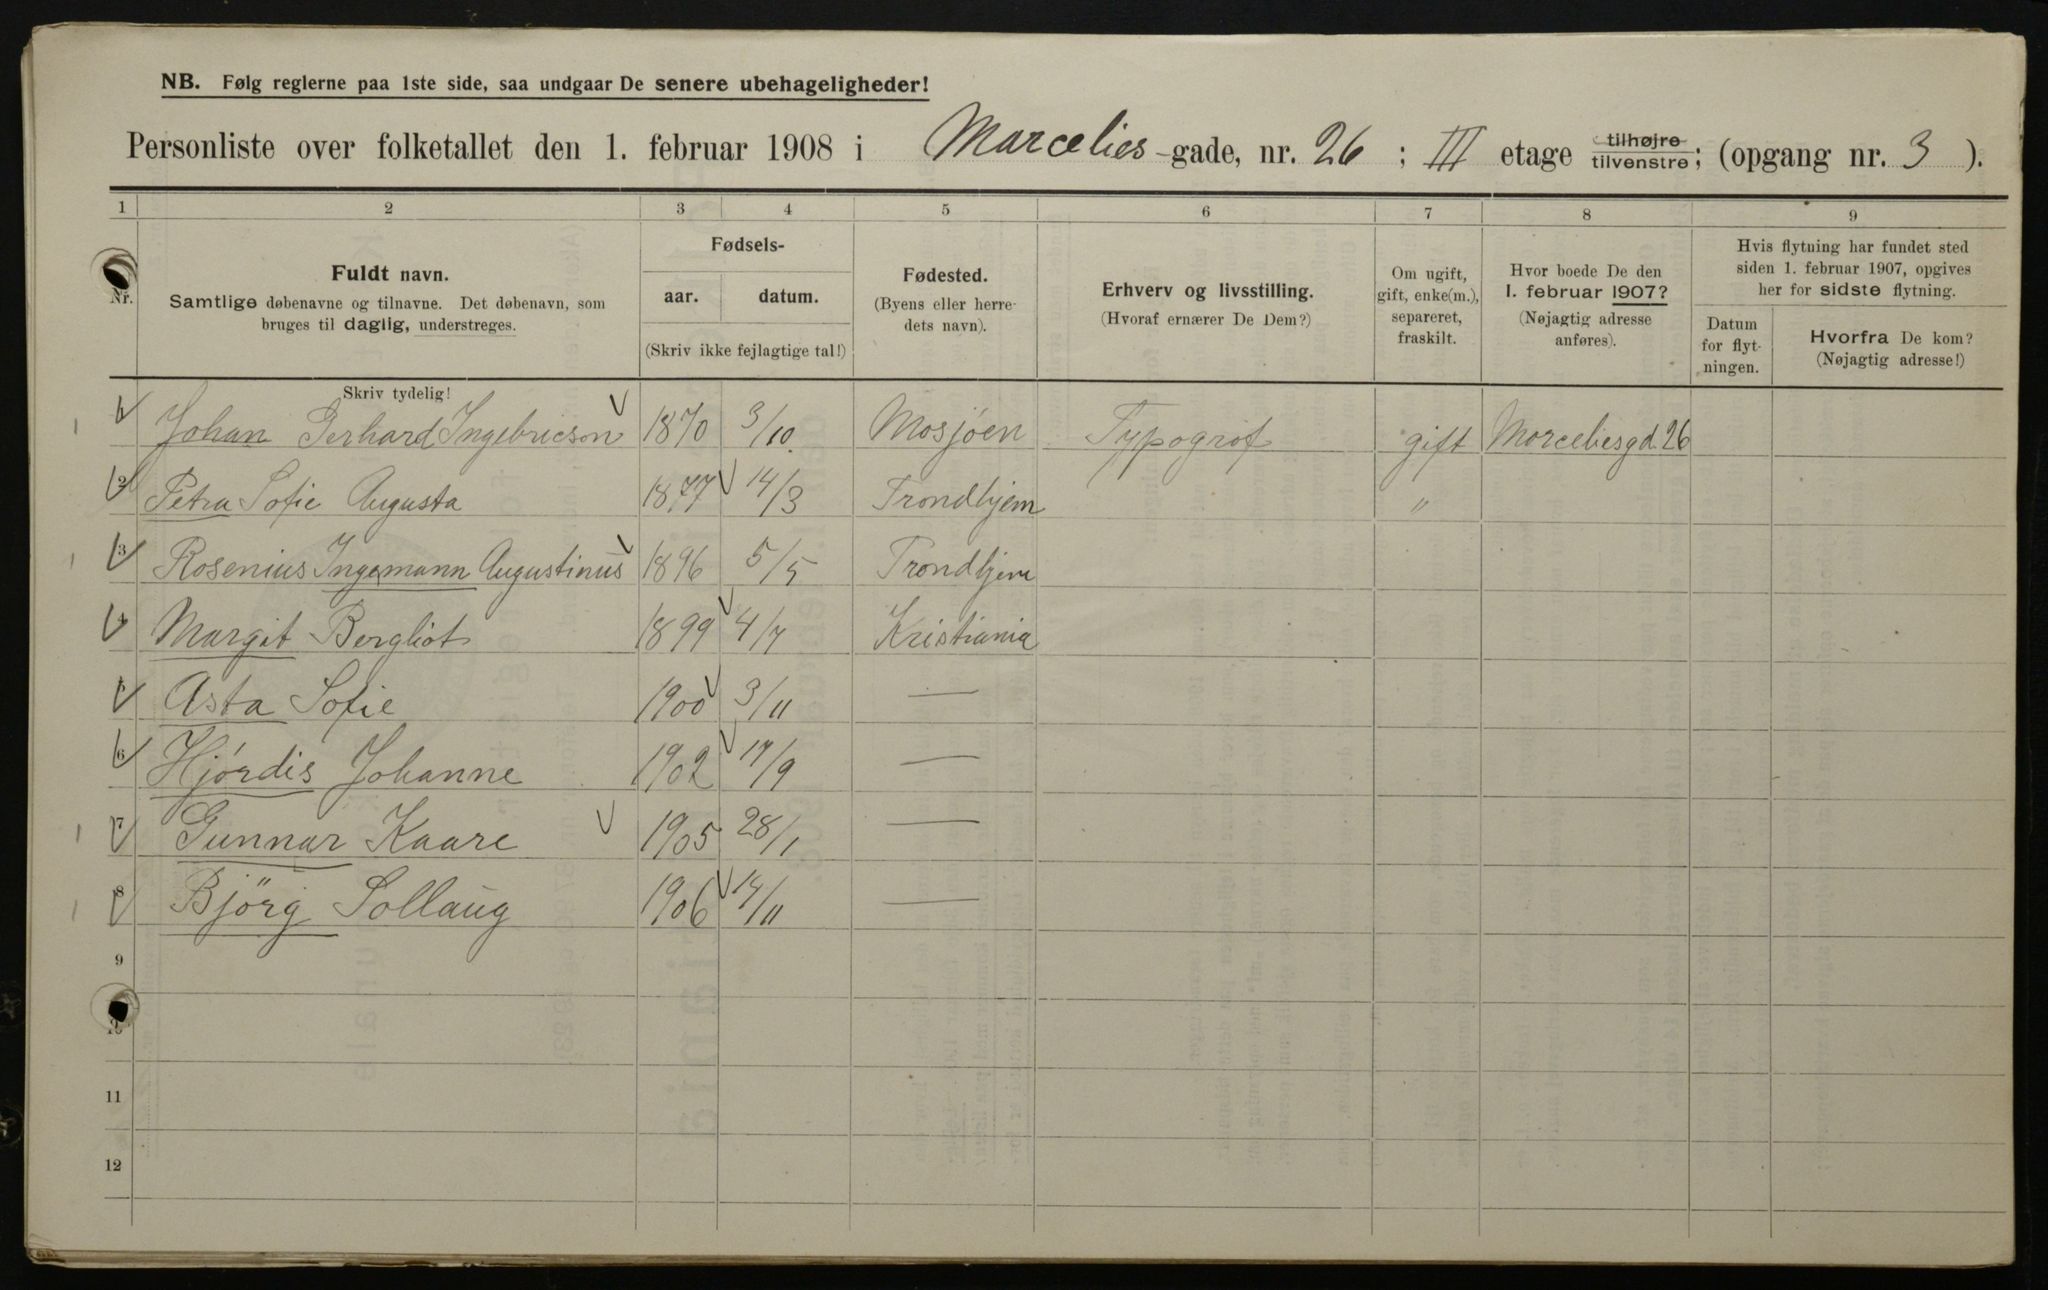 NB. Følg reglerne paa 1ste side, saa undgaar De senere ubehageligheder!
Personliste over folketallet den 1. februar 1908 i Marcelies -gade, nr. 26 ; III etage tilhøjre tilvenstre; (opgang nr. 3 ).
1 2 3 4 5 6 7 8 9
Nr. Fuldt navn. Samtlige døbenavne og tilnavne. Det døbenavn, som bruges til daglig, understreges.
Fødsels- aar. datum. (Skriv ikke fejlagtige tal!)
Fødested. (Byens eller herredets navn).
Erhverv og livsstilling. (Hvoraf ernærer De Dem?)
Om ugift, gift, enke(m.), separeret, fraskilt.
Hvor boede De den 1. februar 1907? (Nøjagtig adresse anføres).
Hvis flytning har fundet sted siden 1. februar 1907, opgives her for sidste flytning.
Datum for flytningen. Hvorfra De kom? (Nøjagtig adresse!)
Skriv tydelig!
1 Johan Gerhard Ingebricson 1870 3/10 Mosjøen Typograf gift Marceliesgd. 26
2 Petra Sofie Augusta 1877 14/3 Trondhjem "
3 Rosenius Ingemann Augustinus 1896 5/5 Trondhjem
4 Margit Bergliot 1899 4/7 Kristiania
5 Asta Sofie 1900 3/11 —
6 Hjørdis Johanne 1902 19/9 —
7 Gunnar Kaare 1905 28/1 —
8 Bjørg Sollaug 1906 14/11 —
9
10
11
12